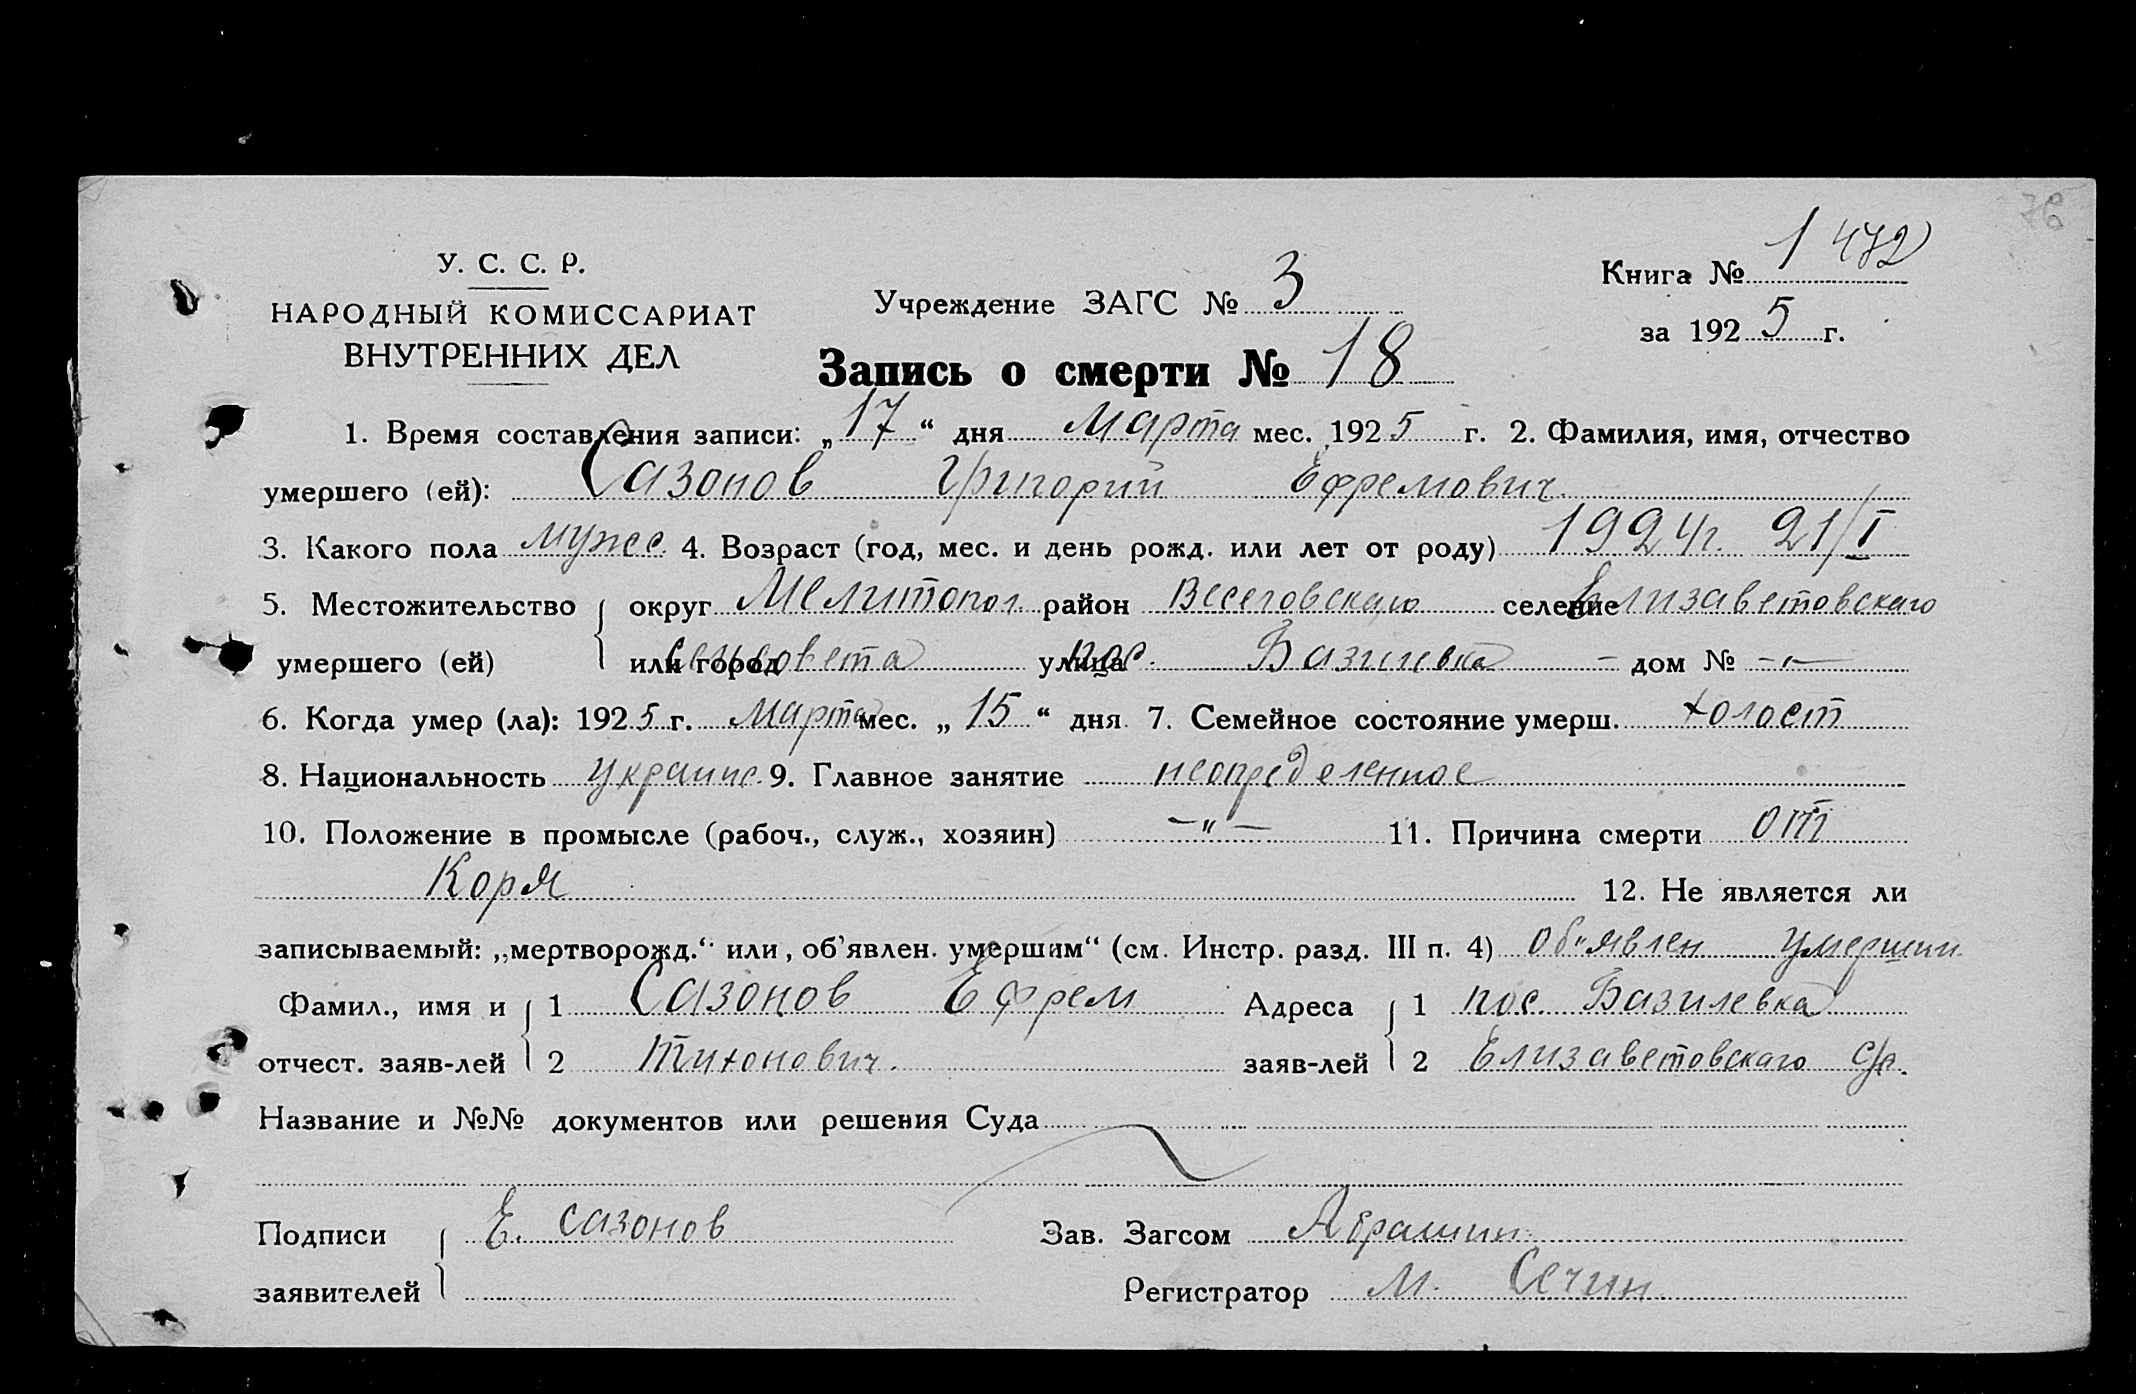 76
У. С. С. Р.
НАРОДНЫЙ КОМИССАРИАТ
ВНУТРЕННИХ ДЕЛ
Учреждение ЗАГС № 3
Книга № 1 472
за 1925 г.
Запись о смерти № 18
1. Время составления записи: „17“ дня Марта мес. 1925 г. 2. Фамилия, имя, отчество
умершего (ей): Сазонов Григорий Ефремович
3. Какого пола мужс. 4. Возраст (год, мес. и день рожд. или лет от роду) 1924г. 21/I
5. Местожительство округ Мелитопол. район Веселовскаго селение Елизаветовскаго
умершего (ей) или город Сельсовета улица пос. Базилевка – дом № –„–
6. Когда умер (ла): 1925 г. Марта мес. „15“ дня 7. Семейное состояние умерш. холост
8. Национальность украинс. 9. Главное занятие неопределенное
10. Положение в промысле (рабоч., служ., хозяин) –„– 11. Причина смерти от
Коря 12. Не является ли
записываемый: „мертворожд.“ или „об'явлен. умершим“ (см. Инстр. разд. III п. 4) об"явлен умершим
Фамил., имя и 1 Сазонов Ефрем Адреса 1 пос. Базилевка
отчест. заяв-лей 2 Тихонович. заяв-лей 2 Елизаветовскаго с/с.
Название и №№ документов или решения Суда
Подписи Е. Сазонов Зав. Загсом Абрашин
заявителей Регистратор М. Сечин